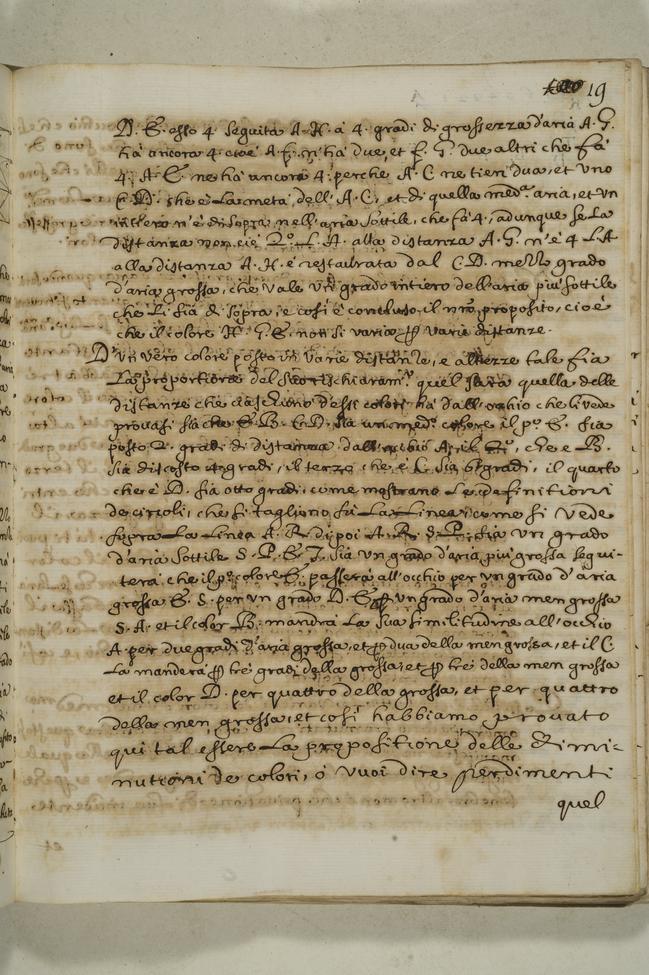 19
D. S. esso 4 seguita A. H. à 4. gradi di grossezza d'aria A. G.
hà ancora 4 cioè A. f. n'hà due, et f. G. due altri che fà
4. A. E. ne hà ancora 4. perche A. C ne tien dua, et uno
C. D. che è la metà, dell'A. C, et di quella med.ª aria, et un
intero n'è di sopra nell'aria sottile, che fà 4, adunque se la
distanza non è L. A. alla distanza A. G. n'è 4 L. A
alla distanza A. H. è restaurata dal C D. mezzo grado
d'aria grossa, che vale un grado intiero dell'aria più sottile
che li sià di sopra, e così è concluso, il nro proposito, cioè
che il colore H. G. E. non si varia p varie distanze.
D'un vero colore posto in varie distanze, e altezze tale fia
la proportione del suo rischiaram.º quel sarà quella delle
distanze che ciascuno d'essi colori hà dall'occhio che li vede
provasi sià che E. B. C. D. sià un med.º colore il p.º E. sia
posto 2. gradi di distanza dall'occhio A. il 2.º, che è B.
sià discosto 4 gradi, il terzo che è C. sia 6 gradi, il quarto
che è D. sia otto gradi, come mostrano le definitioni
de circoli, che si tagliono sù la linea, come si vede
sopra la linea A. R. dipoi A. R. S. P. sia un grado
d'aria sottile S. P. E. T. sia un grado d'aria più grossa segui-
terà che il p.º colore E. passerà all'occhio per un grado d'aria
grossa E. S. per un grado d'aria men grossa
S. A. et il color B. manderà la sua similitudine all'occhio
A. per due gradi d'aria grossa, et p dua della men grossa, et il C
la manderà p tre gradi della grossa, et p tre della men grossa
et il color D. per quattro della grossa, et per quattro
della men grossa, et così habbiamo provato
qui tal essere la propositione delle dimi-
nutioni de colori, ò vuoi dire perdimenti
quel